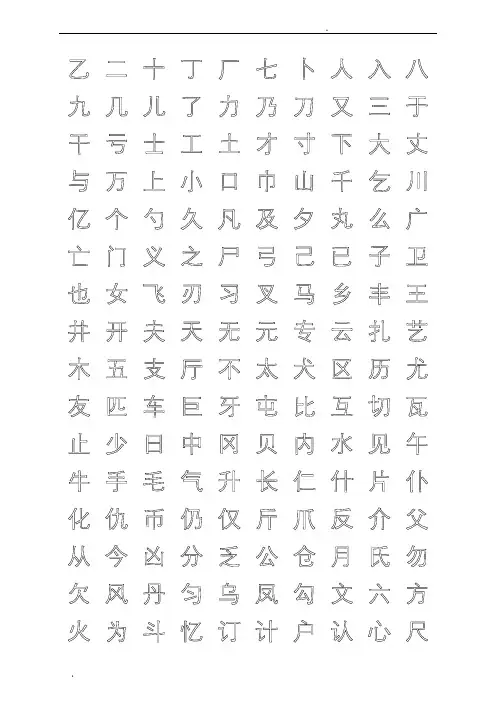 乙 二 十 丁 厂 七 卜 人 入 八
九 几 儿 了 力 乃 刀 又 三 于
干 亏 士 工 土 才 寸 下 大 丈
与 万 上 小 口 巾 山 千 乞 川
亿 个 勺 久 凡 及 夕 丸 么 广
亡 门 义 之 尸 弓 己 已 子 卫
也 女 飞 刃 习 叉 马 乡 丰 王
井 开 夫 天 无 元 专 云 扎 艺
木 五 支 厅 不 太 犬 区 历 尤
友 匹 车 巨 牙 屯 比 互 切 瓦
止 少 日 中 冈 贝 内 水 见 午
牛 手 毛 气 升 长 仁 什 片 仆
化 仇 币 仍 仅 斤 爪 反 介 父
从 今 凶 分 乏 公 仓 月 氏 勿
欠 风 丹 匀 乌 凤 勾 文 六 方
火 为 斗 忆 订 计 户 认 心 尺